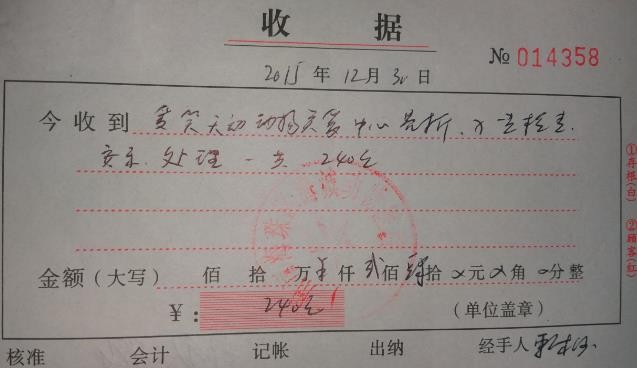 收 据
№ 014358
2015 年 12 月 30 日
今 收 到 爱笑天动动物关爱中心骨折、X光检查.
处理 一共 240元
金额（大写） 佰 拾 万 仟 贰 佰 肆 拾 元 角 分 整
¥： 240元 （单位盖章）
核准 会计 记帐 出纳 经手人
①存根(白) ②顾客(红)